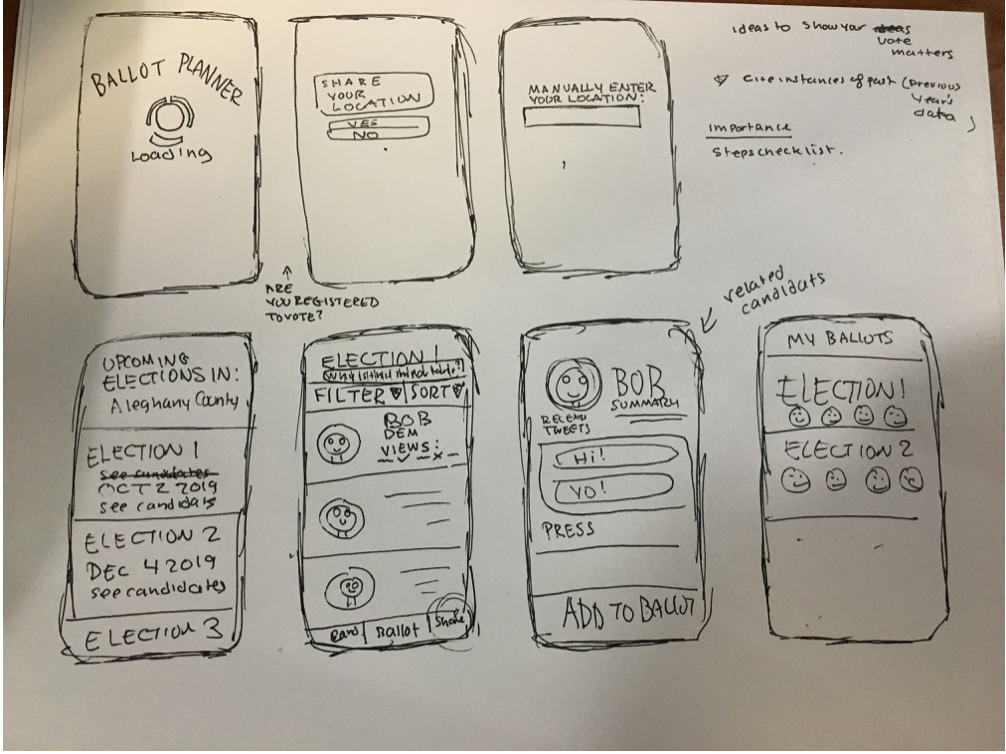 BALLOT PLANNER
Loading
SHARE
YOUR
LOCATION
YES
NO
MANUALLY ENTER
YOUR LOCATION:
ideas to show your ideas
vote
matters
cite instances of past (previous
year's
data)
Importance
Steps checklist.
ARE
YOU REGISTERED
TO VOTE?
related
candidats
UPCOMING
ELECTIONS IN:
Aleghany County
ELECTION 1
see candidates
OCT 2 2019
see candidats
ELECTION 2
DEC 4 2019
see candidates
ELECTION 3
ELECTION 1
Why is this
FILTER SORT
BOB
DEM
VIEWS:
Ballot Share
BOB
SUMMARY
RECENT
TWEETS
Hi!
YO!
PRESS
ADD TO BALLOT
MY BALLOTS
ELECTION 1
ELECTION 2